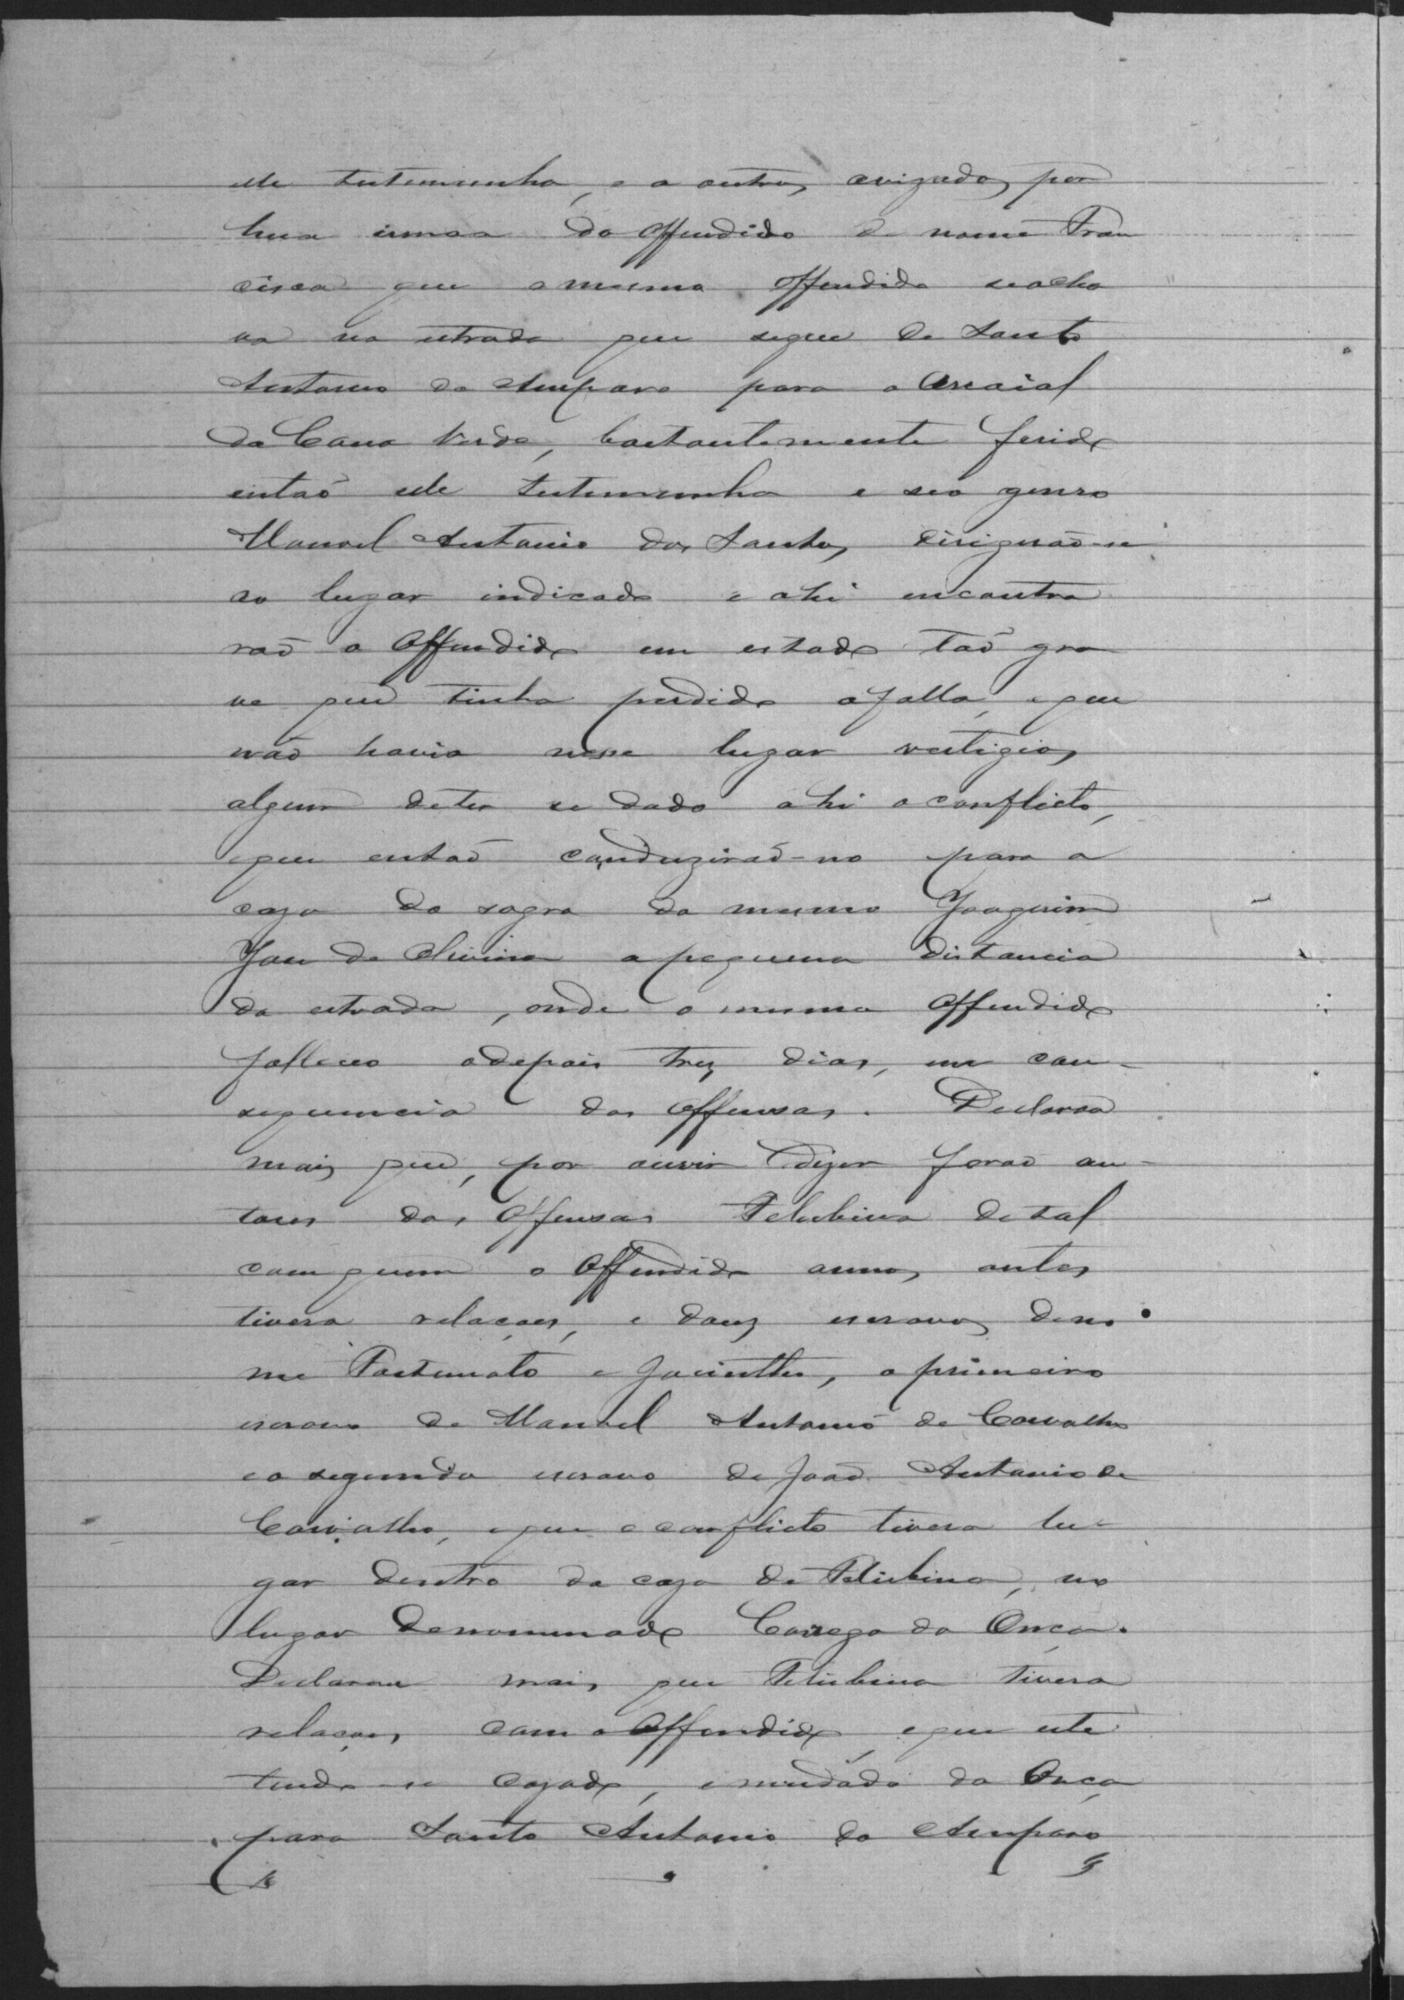 elle testemunha, e a outros, avizados por
hua irmaa do offendido de nome Fran
cisca que o mesmo offendido seacha
va na estrada que segue de Santo
Antonio do Amparo para o Arraial
da Cana Verde, bastantemente ferido
entaõ elle testemunha e seo genro
Manoel Antonio dos Santos, dirigiraõ-se
ao lugar indicado e ahi encontra
raõ o Offendido em estado taõ gra
ve que tinha perdido afalla, e que
naõ havia nesse lugar vestigios
algum deter se dado ahi o conflicto,
e que entaõ conduziraõ-no para a
caza do sogro do mesmo Joaquim
José de Oliveira a pequena distancia
da estrada, onde o mesmo Offendido
falleceo adepois trez dias, em con-
sequencia das offensas. Declarou
mais que, por ouvir dizer foraõ au-
tores das offensas Felisbina de tal
com quem o Offendido annos antes
tivera relaçoes, e dous escravos deno
me Fortunato e Jacintho, o primeiro
escravo de Manoel Antonio de Carvalho
e o segundo escravo de Joaõ Antonio de
Carvalho, e que o conflicto tivera lu-
gar dentro da caza de Felisbina, no
lugar denominado Corrego da Onça.
Declarou mais que Felisbina tivera
relaçoes com o Offendido, e que este
tendo-se cazado, e mudado da Onça
para Santo Antonio do Amparo